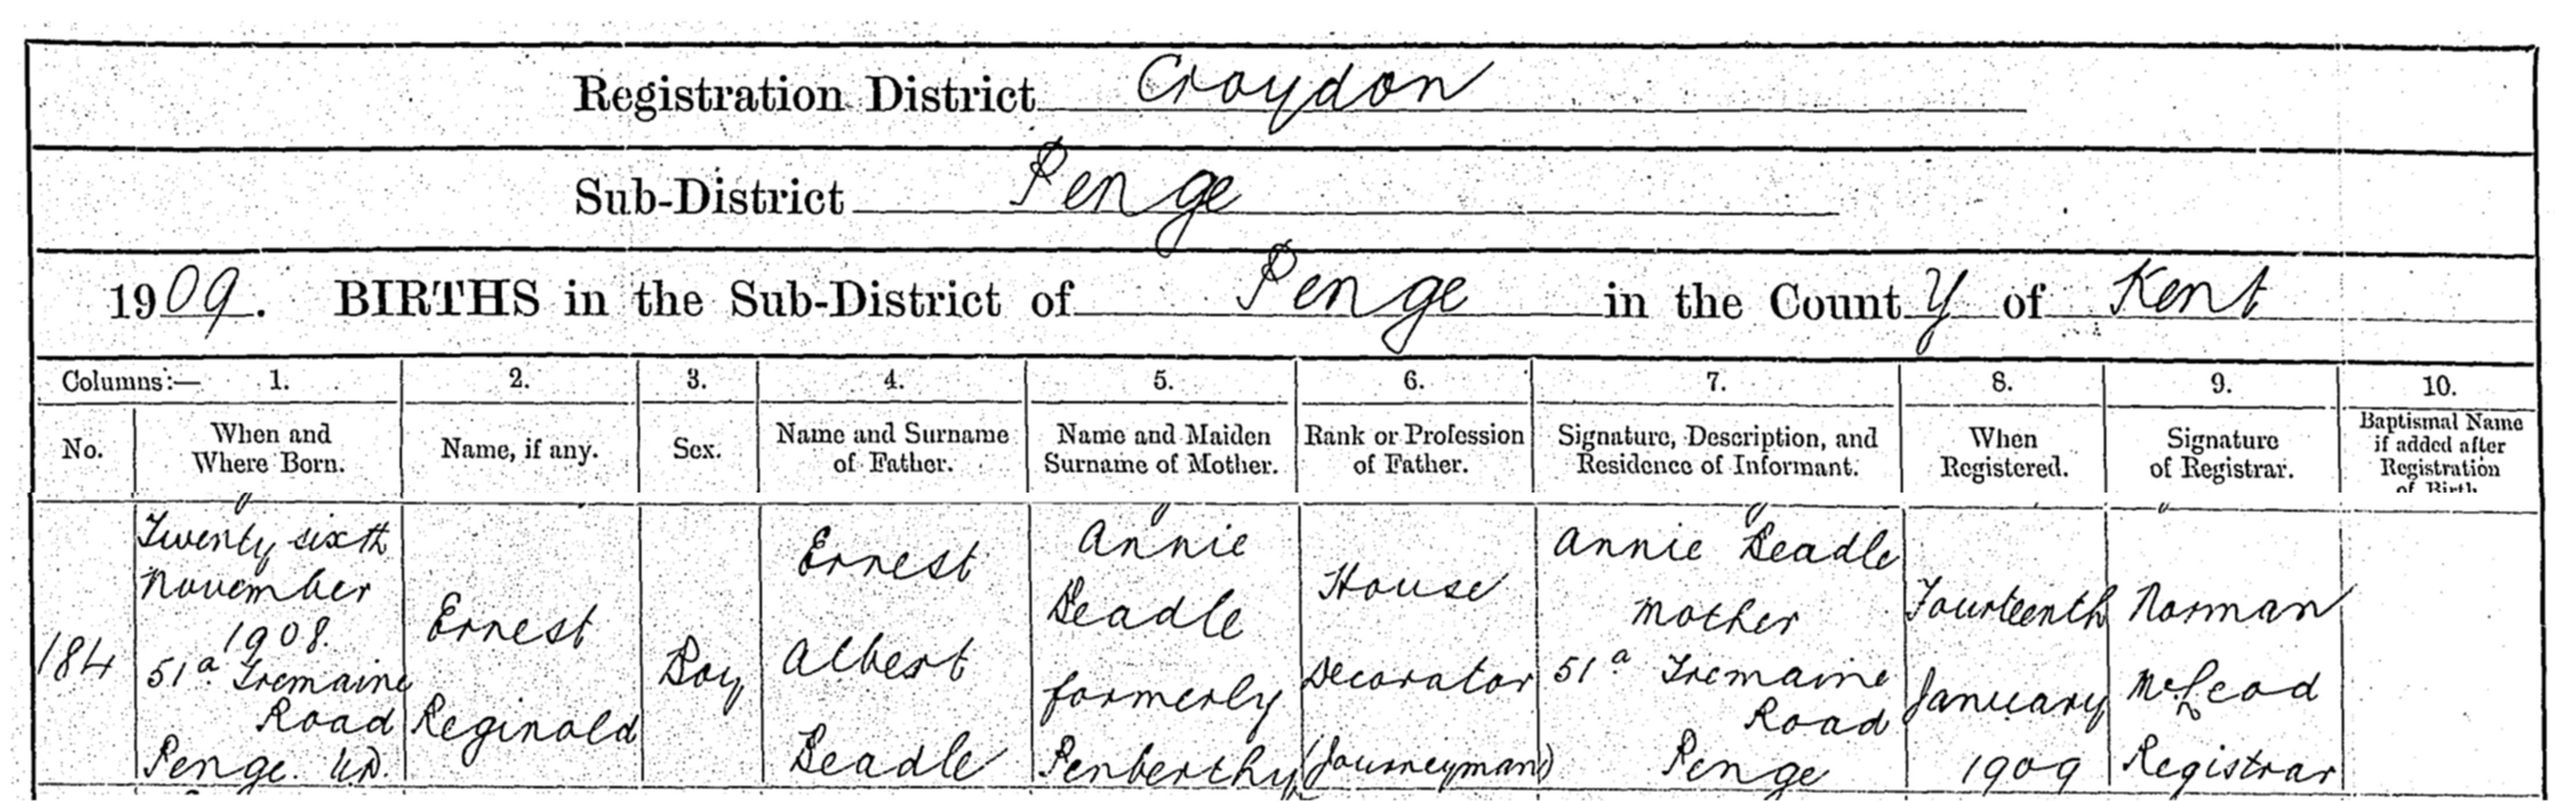 Registration District Croydon
Sub-District Penge
1909. BIRTHS in the Sub-District of Penge in the County of Kent
Columns:— 1. 2. 3. 4. 5. 6. 7. 8. 9. 10.
No.
When and
Where Born.
Name, if any.
Sex.
Name and Surname
of Father.
Name and Maiden
Surname of Mother.
Rank or Profession
of Father.
Signature, Description, and
Residence of Informant.
When
Registered.
Signature
of Registrar.
Baptismal Name
if added after
Registration
of Birth
184
Twenty sixth
November
1908.
51a Tremaine
Road
Penge. U.D.
Ernest
Reginald
Boy
Ernest
Albert
Beadle
Annie
Beadle
formerly
Penberthy
House
Decorator
(Journeyman)
Annie Beadle
Mother
51a Tremaine
Road
Penge
Fourteenth
January
1909
Norman
McLeod
Registrar